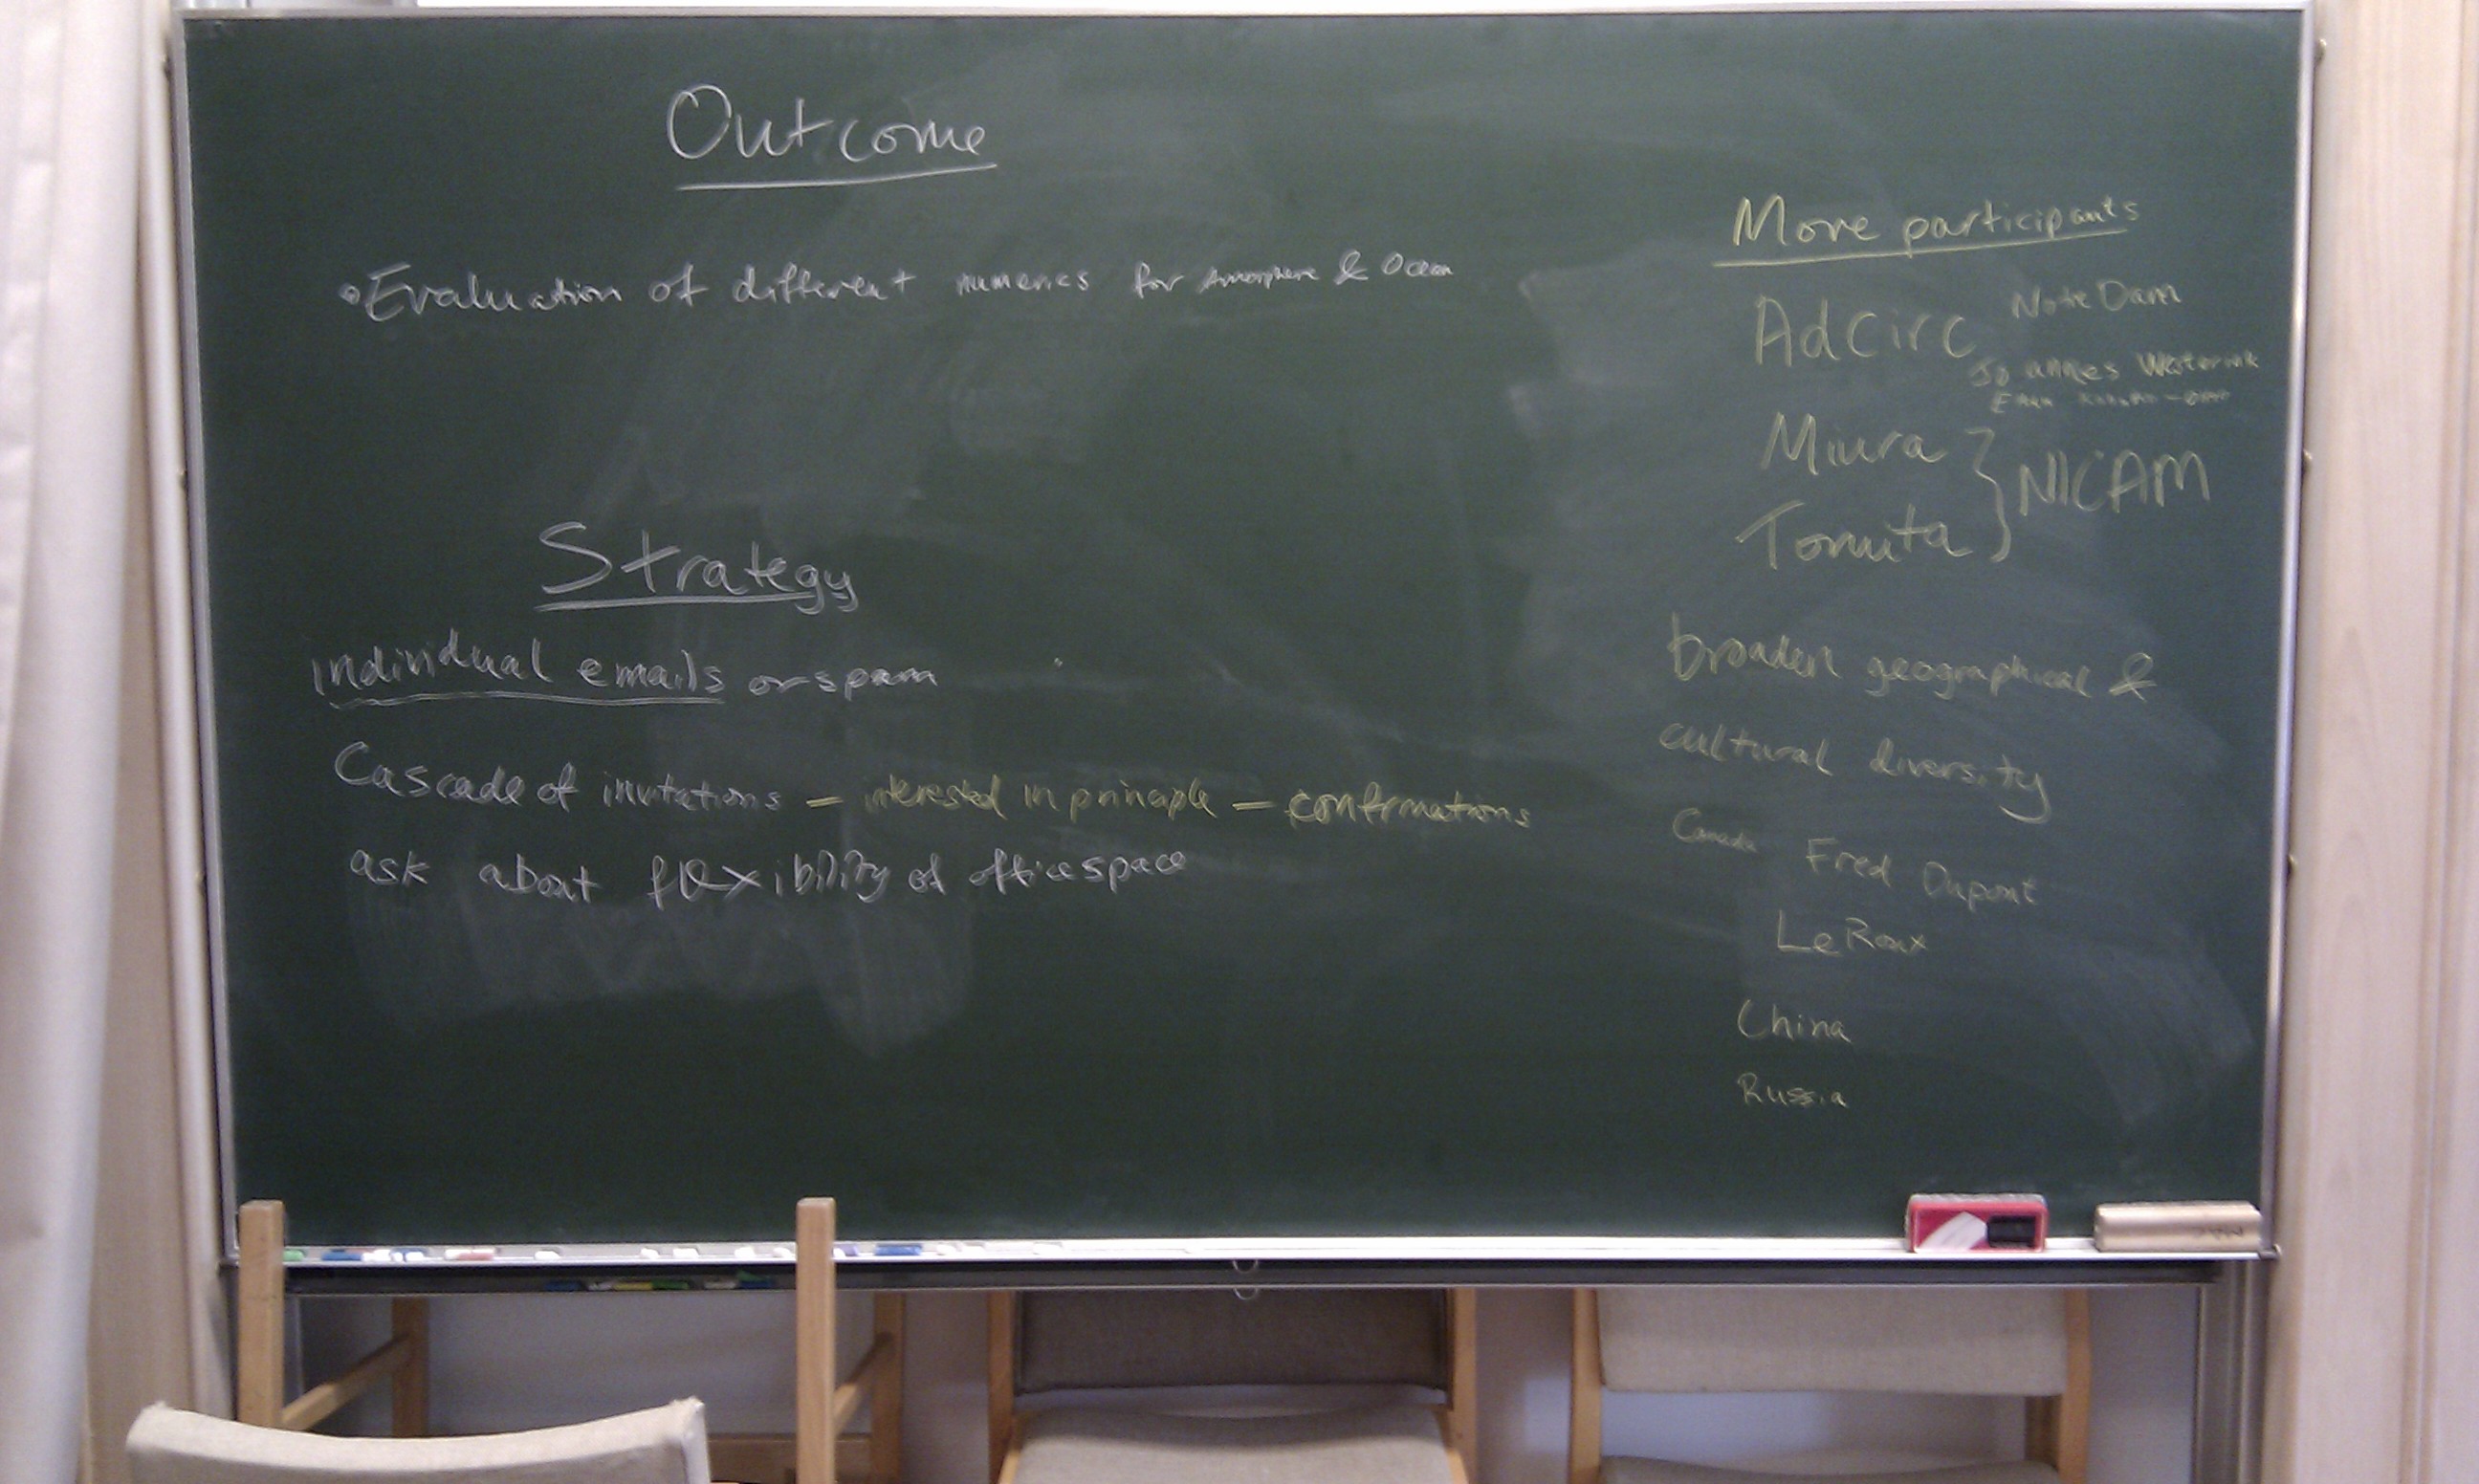 Outcome
•Evaluation of different numerics for Atmosphere & Ocean
Strategy
individual emails or spam
Cascade of invitations – interested in principle – confirmations
ask about flexibility of office space
More participants
Adcirc Notre Dam
Joannes Westerink
Miura } NICAM
Tomita
broaden geographical &
cultural diversity
Canada Fred Dupont
Le Roux
China
Russia